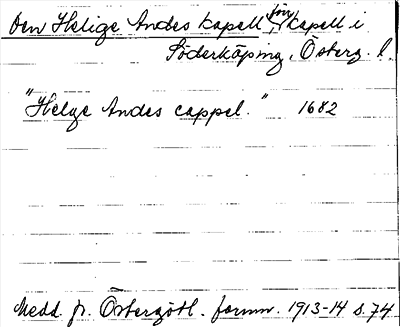 Den Helige Andes kapell, kapell i
Söderköping, Österg. l.
"Helge Andes cappel." 1682
Medd fr. Östergötl. fornm. 1913-14 s. 74